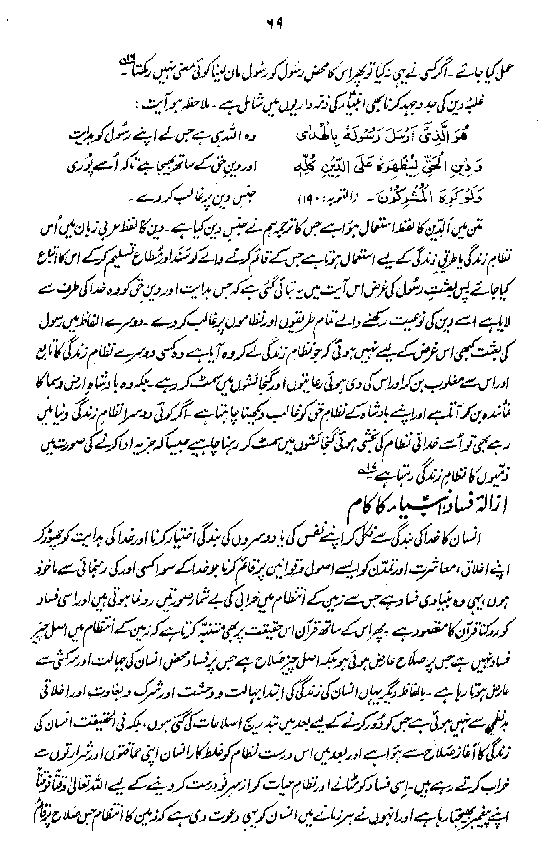 ۶۹
عمل کیا جائے۔ اگر کسی نے یہی نہ کیا تو پھر اس کا محض رسول کو رسول مان لینا کوئی معنی نہیں رکھتا۔
غلبۂ دین کی جدوجہد کرنا بھی انبیاء کی ذمہ داریوں میں شامل ہے۔ ملاحظہ ہو آیت:
هُوَ الَّذِيٓ اَرْسَلَ رَسُوْلَهٗ بِالْهُدٰى وہ اللہ ہی ہے جس نے اپنے رسول کو ہدایت
وَدِيْنِ الْحَقِّ لِيُظْهِرَهٗ عَلَى الدِّيْنِ كُلِّهٖ اور دین حق کے ساتھ بھیجا ہے تاکہ اُسے پوری
وَلَوْ كَرِهَ الْمُشْرِكُوْنَ۔ (التوبہ: جنس دین پر غالب کر دے۔
متن میں الدین کا لفظ استعمال ہوا ہے جس کا ترجمہ ہم نے جنس دین کیا ہے۔ دین کا لفظ عربی زبان میں اُس
نظام زندگی یا طریق زندگی کے لیے استعمال ہوتا ہے جس کے قائم کرنے والے کو سند اور مُطاع تسلیم کر کے اس کا اتباع
کیا جائے پس بعثتِ رسول کی غرض اس آیت میں یہ بتائی گئی ہے کہ جس ہدایت اور دین حق کو وہ خدا کی طرف سے
لایا ہے اسے دین کی نوعیت رکھنے والے تمام طریقوں اور نظاموں پر غالب کر دے۔ دوسرے الفاظ میں رسول
کی بعثت کبھی اس غرض کے لیے نہیں ہوئی کہ جو نظام زندگی لے کر وہ آیا ہے وہ کسی دوسرے نظام زندگی کا تابع
اور اس سے مغلوب بن کر اور اس کی دی ہوئی رعایتوں اور گنجائشوں میں سمٹ کر رہے۔ بلکہ وہ بادشاہِ ارض و سما کا
نمائندہ بن کر آتا ہے اور اپنے بادشاہ کے نظام حق کو غالب دیکھنا چاہتا ہے۔ اگر کوئی دوسرا نظام زندگی دنیا میں
رہے بھی تو اسے خدائی نظام کی بخشی ہوئی گنجائشوں میں سمٹ کر رہنا چاہیے جیسا کہ جزیہ ادا کرنے کی صورت میں
ذمیوں کا نظام زندگی رہتا ہے
ازالۂ فساد انبیاء کا کام
انسان کا خدا کی بندگی سے نکل کر اپنے نفس کی یا دوسروں کی بندگی اختیار کرنا اور خدا کی ہدایت کو چھوڑ کر
اپنے اخلاق، معاشرت اور تمدن کو ایسے اصول و قوانین پر قائم کرنا جو خدا کے سوا کسی اور کی رہنمائی سے ماخوذ
ہوں، یہی وہ بنیادی فساد ہے جس سے زمین کے انتظام میں خرابی کی بے شمار صورتیں رونما ہوتی ہیں اور اسی فساد
کو روکنا قرآن کا مقصود ہے۔ پھر اس کے ساتھ قرآن اس حقیقت پر بھی متنبہ کرتا ہے کہ زمین کے انتظام میں اصل چیز
فساد نہیں ہے جس پر صلاح عارض ہوئی ہو بلکہ اصل چیز صلاح ہے جس پر فساد محض انسان کی جہالت اور سرکشی سے
عارض ہوتا رہا ہے۔ بالفاظ دیگر یہاں انسان کی زندگی کی ابتدا جہالت و وحشت اور شرک و بغاوت اور اخلاقی
بدنظمی سے نہیں ہوئی ہے جس کو دور کرنے کے لیے بعد میں بتدریج اصلاحات کی گئی ہوں، بلکہ فی الحقیقت انسان کی
زندگی کا آغاز صلاح سے ہوا ہے اور بعد میں اس درست نظام کو غلط کار انسان اپنی حماقتوں اور شرارتوں سے
خراب کرتے رہے ہیں۔ اسی فساد کو مٹانے اور نظام حیات کو از سر نو درست کر دینے کے لیے اللہ تعالیٰ وقتاً فوقتاً
اپنے پیغمبر بھیجتا رہا ہے اور انہوں نے ہر زمانے میں انسان کو یہی دعوت دی ہے کہ زمین کا انتظام جس صلاح پر قائم